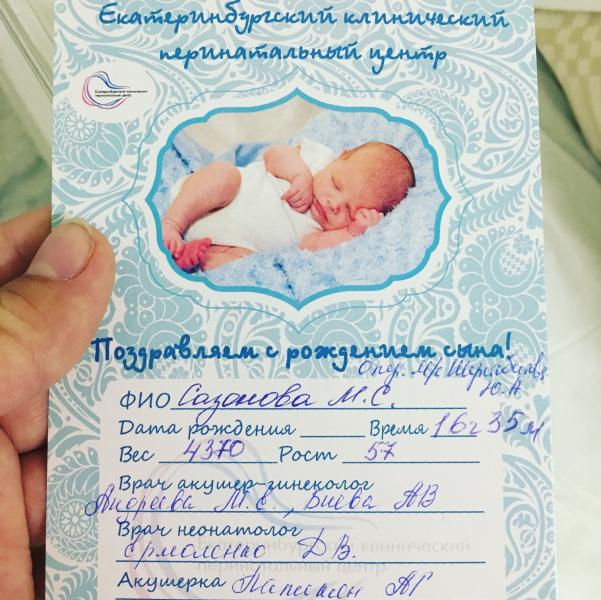 Екатеринбургский клинический
перинатальный центр
Екатеринбургский клинический
перинатальный центр
Поздравляем с рождением сына!
опер. м/с
Ю.А
ФИО Сазонова М.С.
Дата рождения Время 16ч 35м
Вес 4370 Рост 57
Врач акушер-гинеколог
Андреева М.С., Биева АВ
Врач неонатолог
Ермоленко Д.В.
Екатеринбургский клинический
перинатальный центр
Акушерка АГ